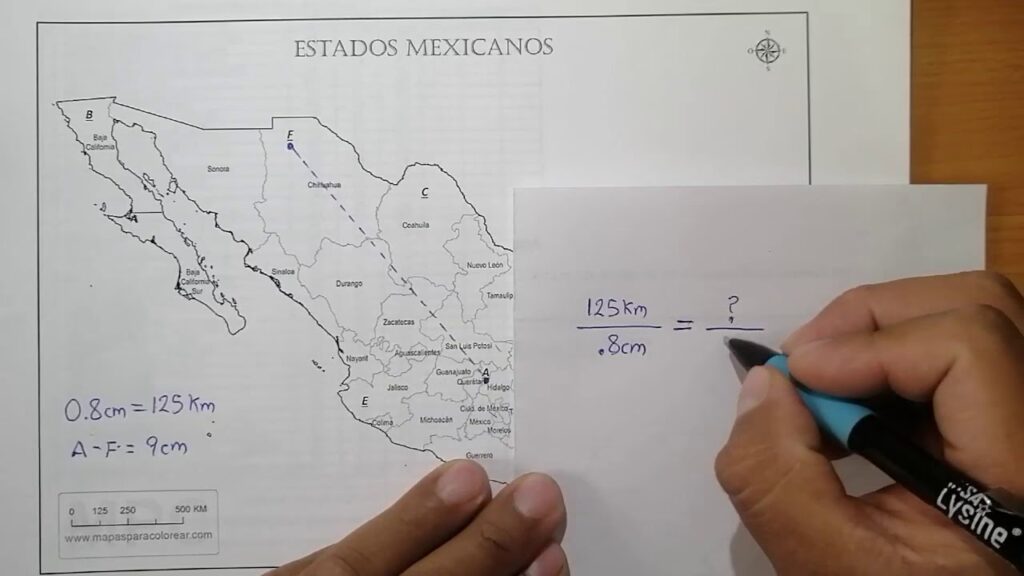 ESTADOS MEXICANOS
N
O E
S
B
Baja
California
F
Sonora
Chihuahua
C
Coahuila
A
Nuevo León
Baja
California
Sur
Sinaloa
Durango
Tamaulip
Zacatecas
San Luis Potosí
Nayarit
Aguascalientes
Guanajuato
A
Querétaro
Hidalgo
Jalisco
E
Colima
Michoacán
Cidd. de México
México
Morelos
Guerrero
0.8cm = 125 Km
A-F = 9cm
0 125 250 500 KM
www.mapasparacolorear.com
125 Km = ?
.8cm
Lysine